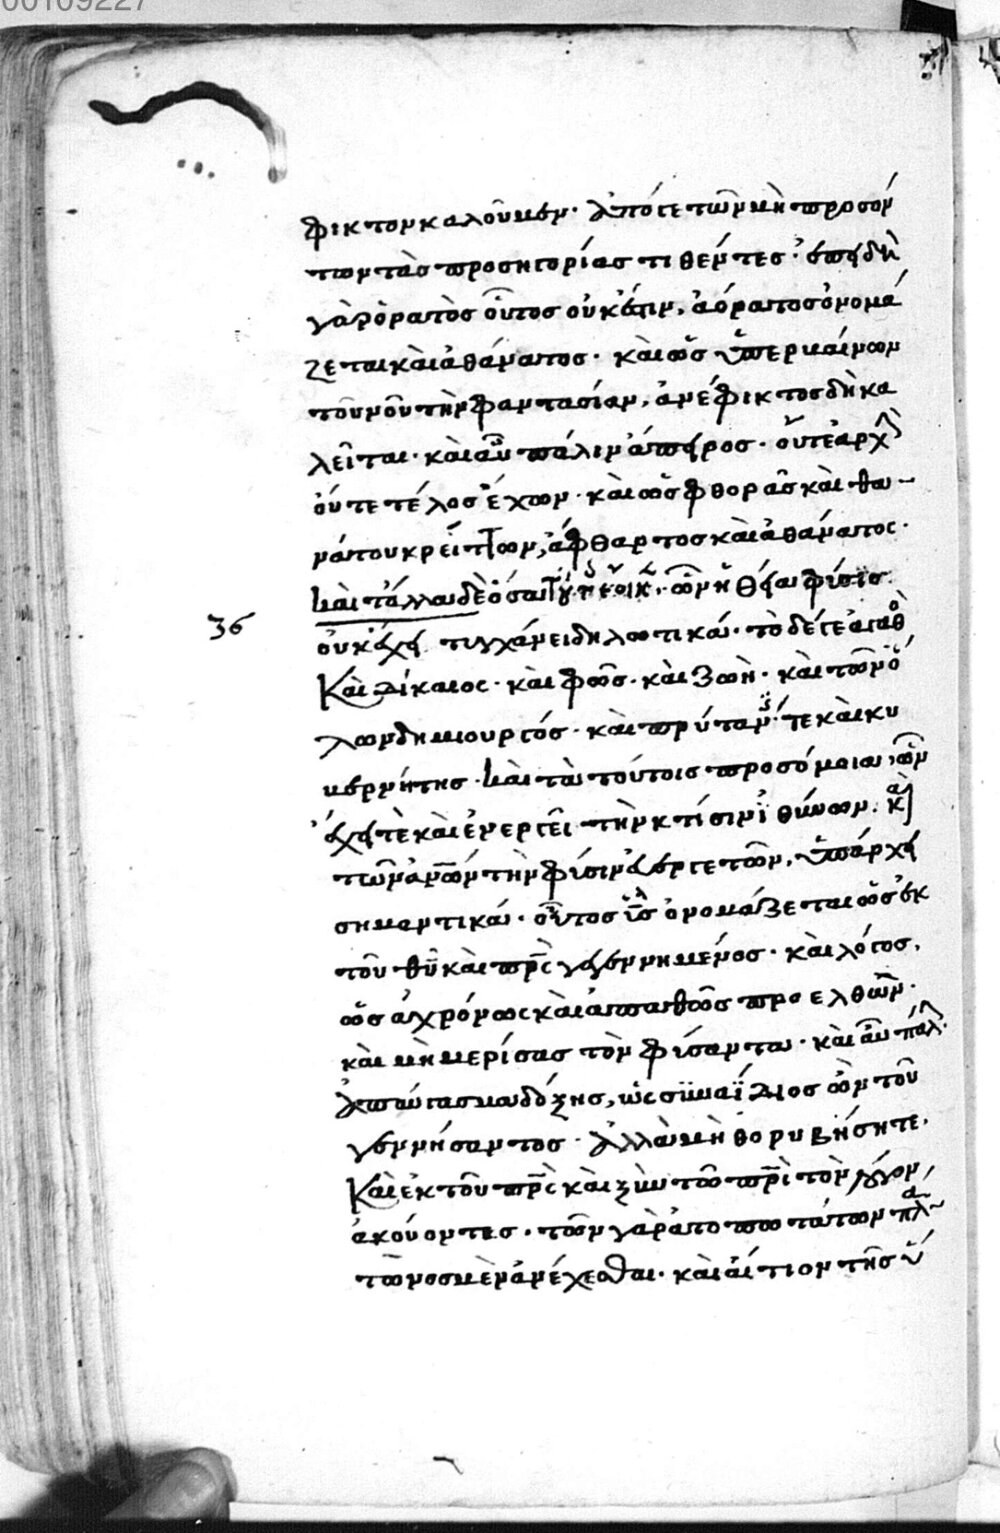 00109227
φικτον καλοῦμεν· ἀπό γε τῶν μὴ προσόν
των τὰς προσηγορίας τιθέντες· ἐπειδὴ
γὰρ ὁρατὸς οὗτος οὐκ ἔστιν, ἀόρατος ὀνομά
ζεται καὶ ἀθάνατος· καὶ ὡς ὑπερβαίνων
τοῦ νοῦ τὴν φαντασίαν, ἀνέφικτος δὴ κα
λεῖται· καὶ αὖ πάλιν ἄπειρος· οὔτε ἀρχὴν
οὔτε τέλος ἔχων· καὶ ὡς φθορᾶς καὶ θα
νάτου κρείττων, ἄφθαρτος καὶ ἀθάνατος·
καὶ τἄλλα δὲ ὅσα ὧν ἡ θεία φύσις
36 οὐκ ἔχει τυγχάνει δηλωτικά· τὸ δέ γε ἀγαθὸ
καὶ δίκαιος· καὶ φῶς· καὶ ζωὴ· καὶ τῶν ὅ
λων δημιουργός· καὶ πρύτανίς τε καὶ κυ
βερνήτης· καὶ τὰ τούτοις προσόμοια, ὧν
ἔχει τὲ καὶ ἐνεργεῖ τὴν κτίσιν ἰθύνων· καὶ
τῶν ἀνων τὴν φύσιν εὐεργετῶν, ὑπάρχει
σημαντικά· οὗτος υἱς ὀνομάζεται ὡς ἐκ
τοῦ θυ καὶ πρς γεγεννημένος· καὶ λόγος,
ὡς ἀχρόνως καὶ ἀπαθῶς προελθὼν·
καὶ μὴ μερίσας τὸν φύσαντα· καὶ αὖ πάλ
ἀπαύγασμα δόξης, ὡς συναΐδιος ὢν τοῦ
γεννήσαντος· ἀλλὰ μὴ θορυβήσητε,
καὶ ἐκ τοῦ πρς καὶ ξὺν τῶ πρὶ τὸν λόγον,
ἀκούοντες· τῶν γὰρ ἀτοπωτάτων
τῶνος μὲν ἀνέχεσθαι· καὶ αἴτιον τῆς ὑ